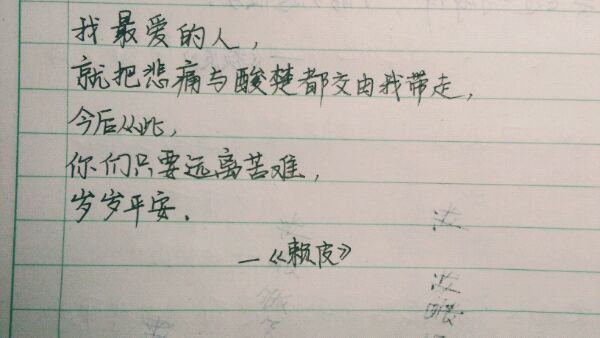 我最爱的人，
就把悲痛与酸楚都交由我带走，
今后从此，
你们只要远离苦难，
岁岁平安.
—《赖皮》